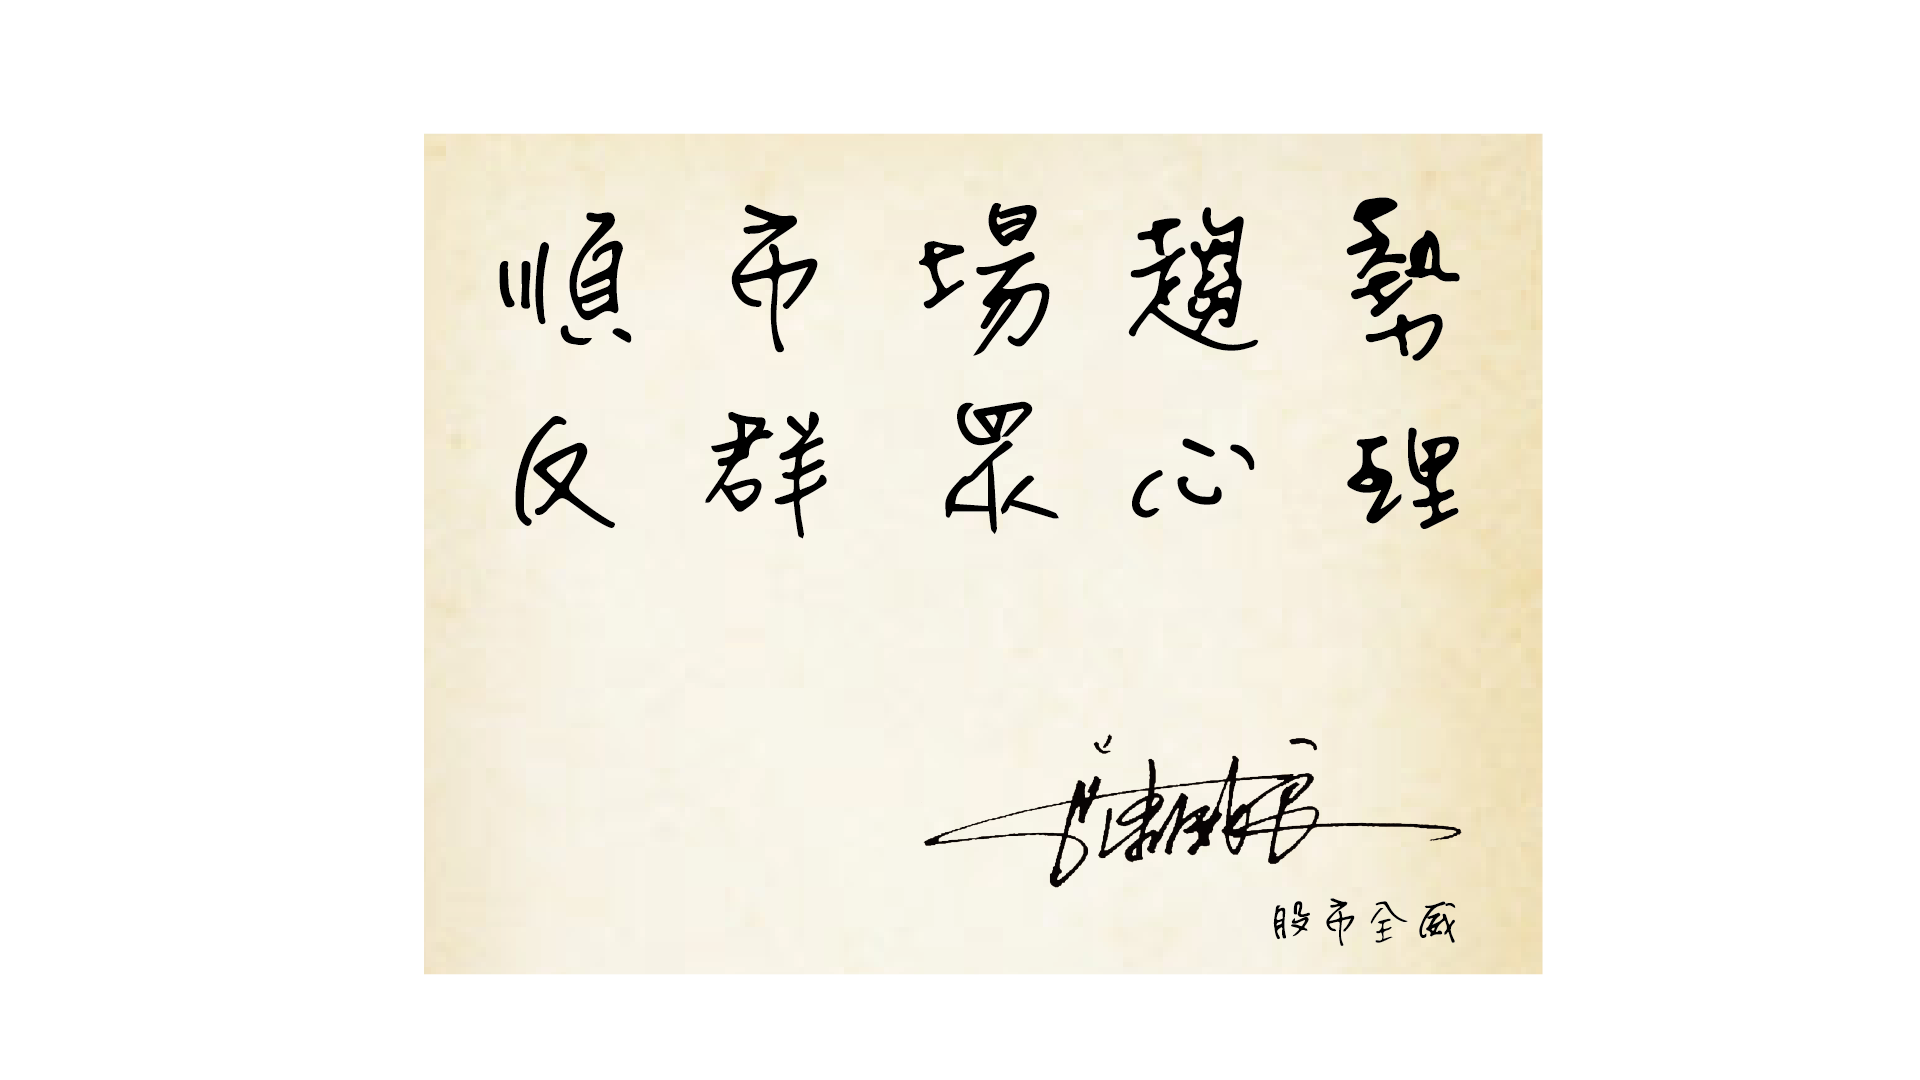 順市場趨勢
反群眾心理
股市全威